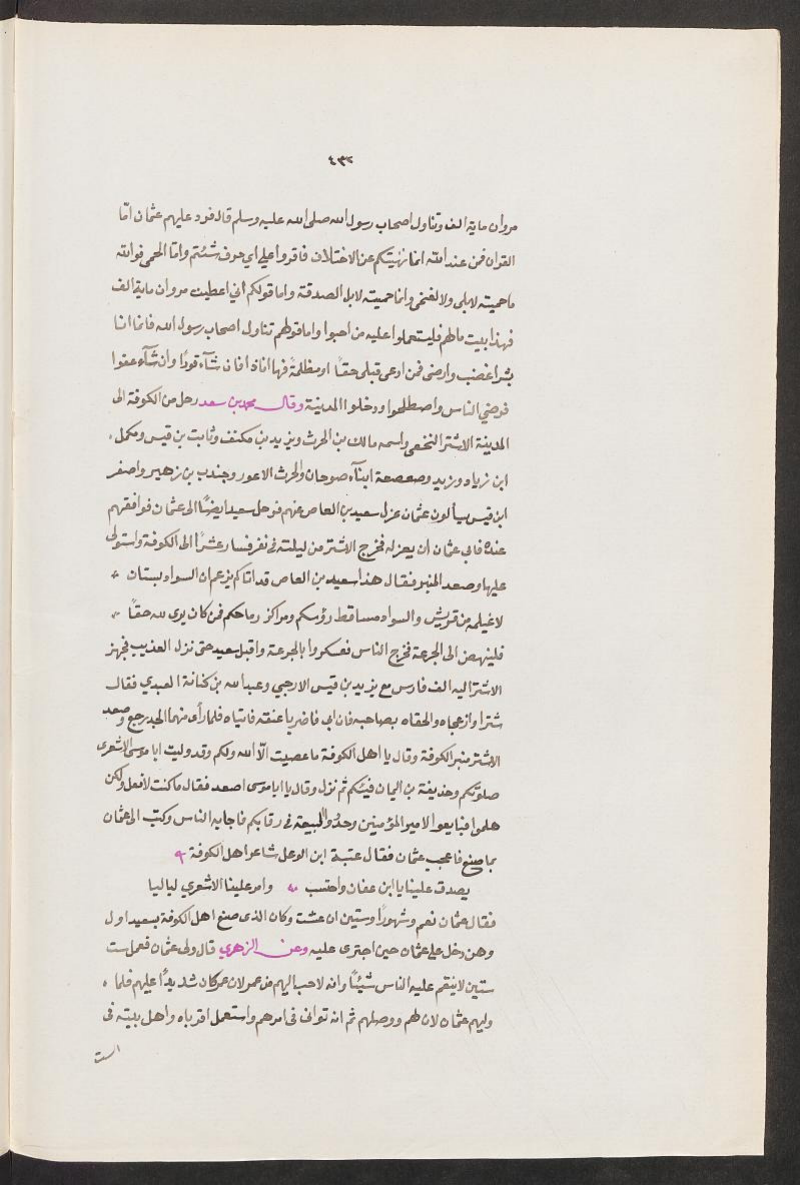 ٤٣٢
مروان ماية الف وتناول اصحاب رسول الله صلى الله عليه وسلم قال فرد عليهم عثمان امّا
القران فمن عند الله انما نهيتكم عن الاختلاف فاقروا علي اي حرف شئتم وامّا الحمى فوالله
ما حميته لابلى ولا لغنمى وانما حميته لابل الصدقة واما قولكم اني اعطيت مروان ماية الف
فهذا بيت مالهم فليستعملوا عليه من احبوا واما قولهم تناول اصحاب رسول الله فانما انا
بشر اغضب وارضى فمن ادعى قبلى حقًا او مظلمةً فها انا ذا فان شآء قودًا وان شآء عفوا
فرضي الناس واصطلحوا ودخلوا المدينة وقال محمد بن سعد رحل من الكوفة الى
المدينة الاشتر النخعى واسمه مالك بن الحرث ويزيد بن مكنف وثابت بن قيس ومكمل
ابن زياد وزيد وصعصعة ابنآء صوحان والحرث الاعور وجندب بن زهير واصفر
ابن قيس يسألون عثمان عزل سعيد بن العاص عنهم فرحل سعيد ايضًا الى عثمان فوافقهم
عنده فابى عثمان ان يعزله فخرج الاشتر من ليلته في نفر فسار عشرًا الى الكوفة واستولى
عليها وصعد المنبر فقال هذا سعيد بن العاص قد اتاكم يزعم ان السواد بستان
لاغيلمه من قريش والسواد مساقط رؤسكم ومراكز رماحكم فمن كان يرى لله حقًا
فلينهض الى الجرعة فخرج الناس فعسكروا بالجرعة واقبل سعيد حتى نزل العذيب فجهز
الاشتر اليه الف فارس مع يزيد بن قيس الارحبي وعبد الله بن كنانة العبدي فقال
شترا وازعجاه والحقاه بصاحبه فان ابى فاضربا عنقه فاتياه فلما رأى منهما الجد رجع وصعد
الاشتر منبر الكوفة وقال يا اهل الكوفة ما غضبت الّا لله ولكم وقد وليت ابا موسى الاشعرى
صلوتكم وحذيفة بن اليمان فيئكم ثم نزل وقال يا ابا موسى اصعد فقال ما كنت لافعل ولكن
هلموا فبايعوا لامير المؤمنين وجدّدوا البيعة في رقابكم فاجابه الناس وكتب الى عثمان
بما صنع فاعجب عثمان فقال عتبة ابن الوعل شاعر اهل الكوفة
يصدق علينا يا ابن عفان واحتسب وامر علينا الاشعري لياليا
فقال عثمان نعم وشهورًا وسنين ان عشت وكان الذى صنع اهل الكوفة بسعيد اول
وهن دخل على عثمان حين اجترى عليه وعن الزهرى قال ولى عثمان فعمل ست
سنين لا ينقم عليه الناس شيئًا وانه لاحب اليهم من عمر لان عمر كان شديدًا عليهم فلما
وليهم عثمان لان لهم ووصلهم ثم انه توانى فى امرهم واستعمل اقرباه واهل بيته فى
الست